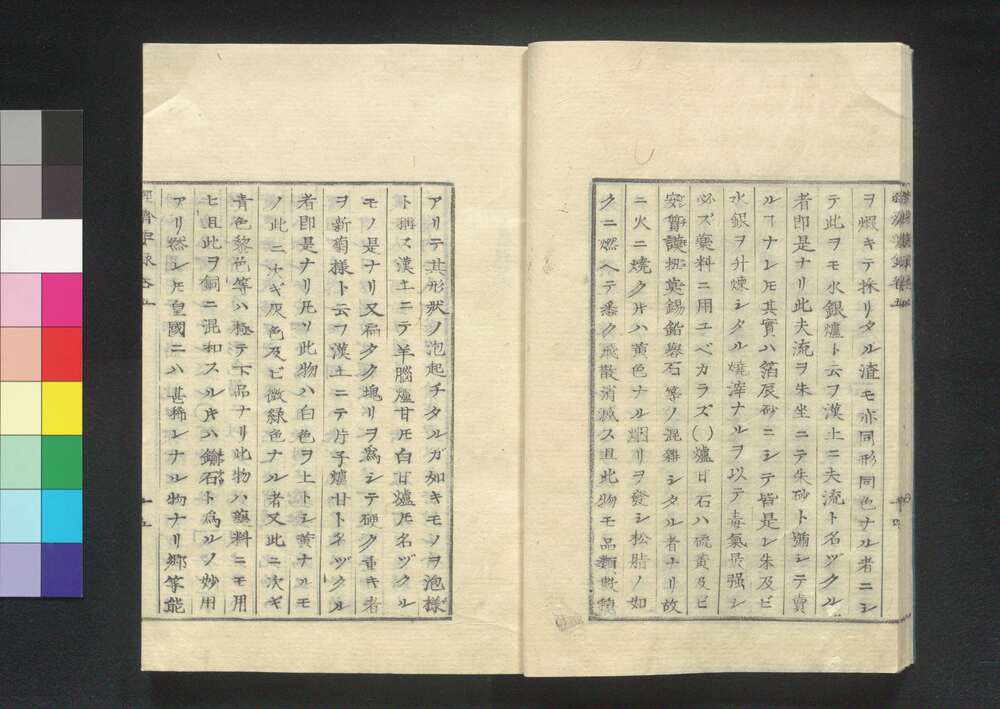 ヲ煆キテ採リタル渣モ亦同形同色ナル者ニシ
テ此ヲモ水銀爐ト云ヲ漢土ニ夫流ト名ヅクル
者即是ナリ此夫流ヲ朱坐ニテ朱砂ト號シテ賣
ルヿナレ𪜈其實ハ箔辰砂ニシテ皆是レ朱及ビ
水銀ヲ升煉シタル燒滓ナルヲ以テ毒氣最强シ
必ズ藥料ニ用ユベカラズ○爐甘石ハ硫黄及ビ
安質謨扼莫錫鉛礜石等ノ混雜シタル者ユリ故
ニ火ニ燒ク片ハ黄色ナル烟リヲ發シ松脂ノ如
クニ燃ヘテ悉ク飛散消滅ス且此物モ品類數種
アリテ其形狀ノ泡起チタルガ如キモノヲ泡樣
ト稱ス漢土ニテ羊腦爐甘𪜈白甘爐𪜈名ヅクル
モノ是ナリ又扁タク塊リヲ爲シテ硬ク重キ者
ヲ新菊樣ト云フ漢土ニテ片子爐甘ト名ヅクル
者即是ナリ凡ソ此物ハ白色ヲ上トシ黄ナルモ
ノ此ニ次ギ灰色及ビ微緑色ナル者又此ニ次ギ
青色黎色等ハ極テ下品ナリ此物ハ藥料ニモ用
ヒ且此ヲ銅ニ混和スル片ハ鍮石ト爲ルノ妙用
アリ然レ𪜈皇國ニハ甚稀レナル物ナリ鄕等能